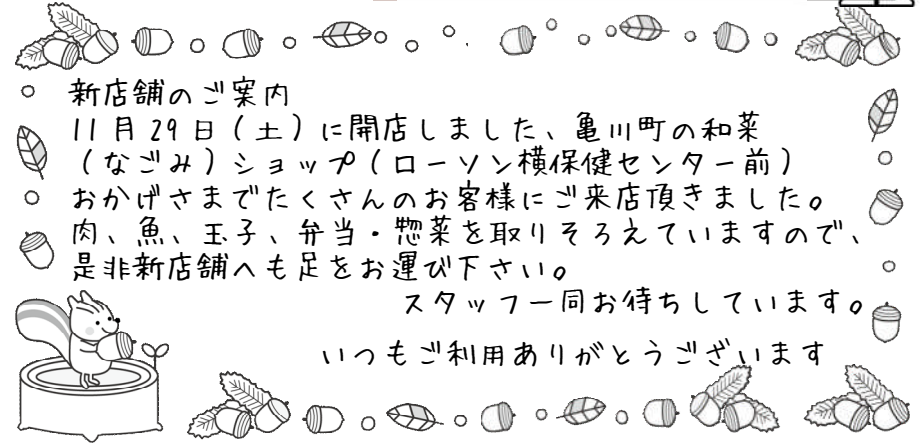 新店舗のご案内
11月29日（土）に開店しました、亀川町の和菜
（なごみ）ショップ（ローソン横保健センター前）
おかげさまでたくさんのお客様にご来店頂きました。
肉、魚、玉子、弁当・惣菜を取りそろえていますので、
是非新店舗へも足をお運び下さい。
スタッフ一同お待ちしています。
いつもご利用ありがとうございます